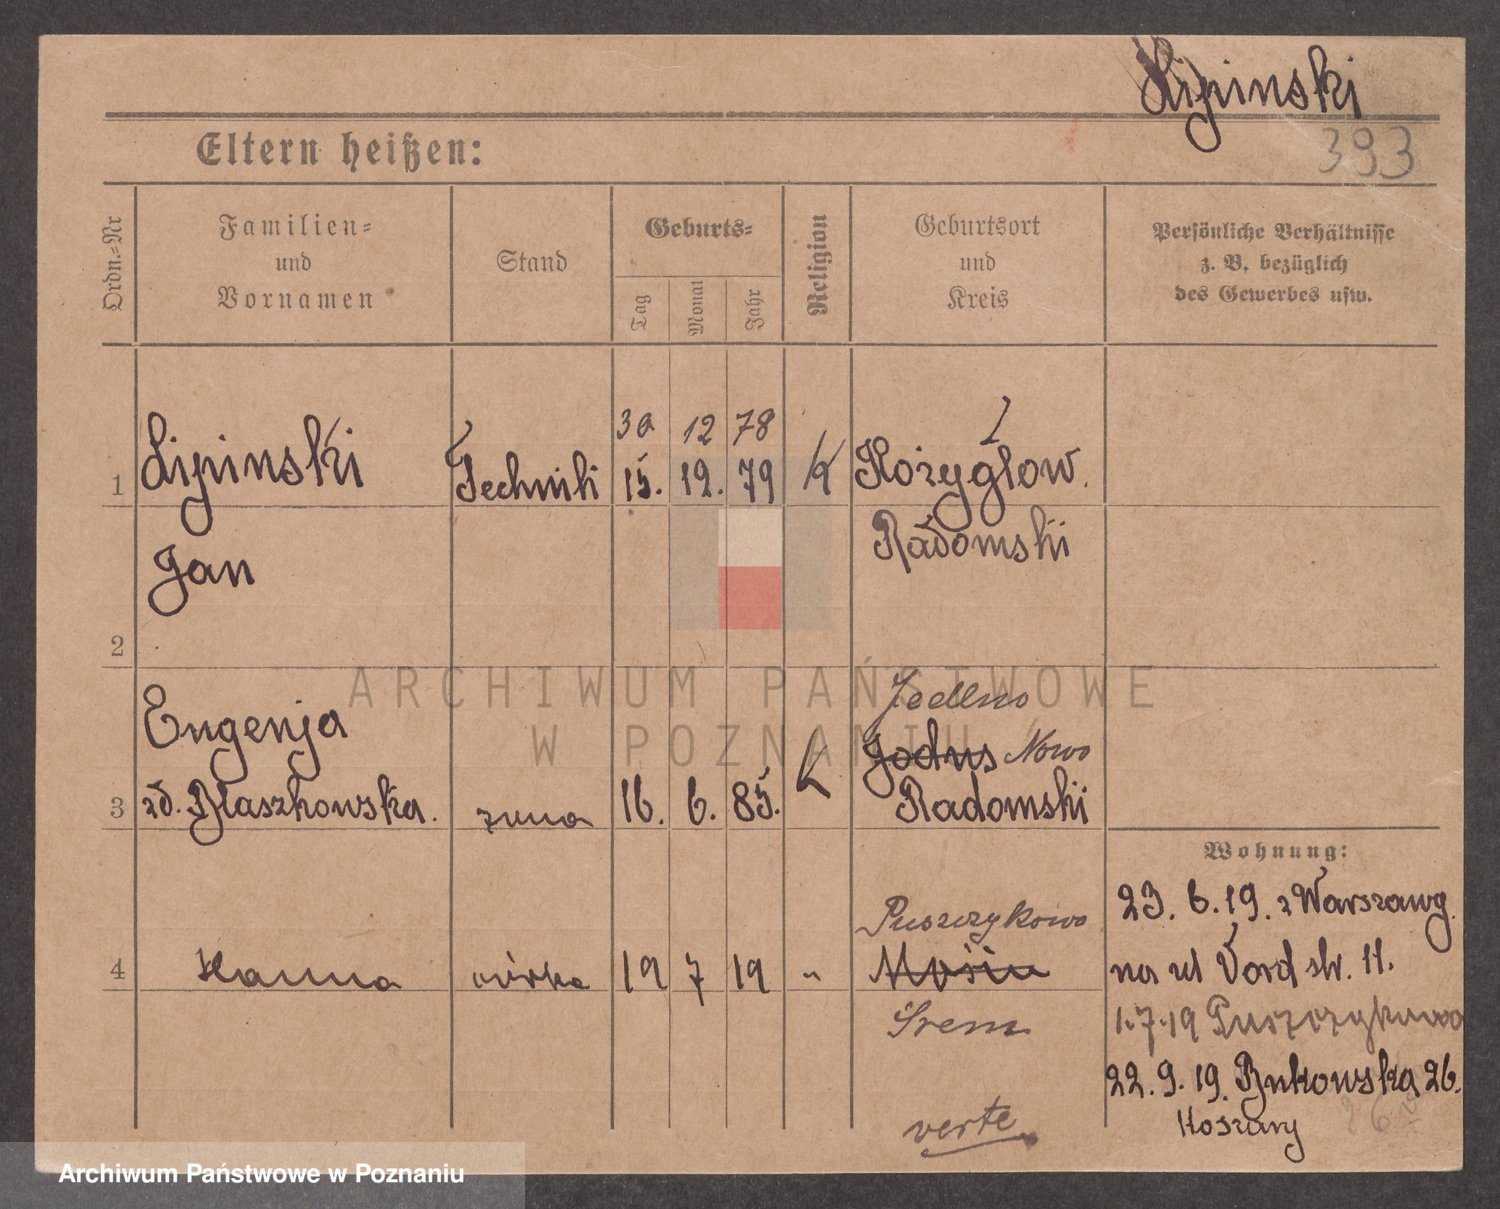 Lipinski
393
Eltern heißen:
Ordn.-Nr
Familien-
und
Vornamen
Stand
Geburts-
Tag
Monat
Jahr
Religion
Geburtsort
und
Kreis
Persönliche Verhältnisse
z. B. bezüglich
des Gewerbes usw.
30 12 78
1 Lipinski Technik 15. 12. 79 k Rożygłow.
Radomski
Jan
2
Engenja
Jedlno
Jodns Nowo
3 zd. Blaszkowska. żona 16. 6. 85. k Radomski
Wohnung:
23. 6. 19. z Warszawy.
Puszczykowo
4 Hanna córka 19 7 19 " Mosin
na ul Vord str. 11.
Śrem
1.7.19 Puszczykowo
22. 9. 19. Bukowska 26.
Koszary
verte
ARCHIWUM PAŃSTWOWE
W POZNANIU
Archiwum Państwowe w Poznaniu